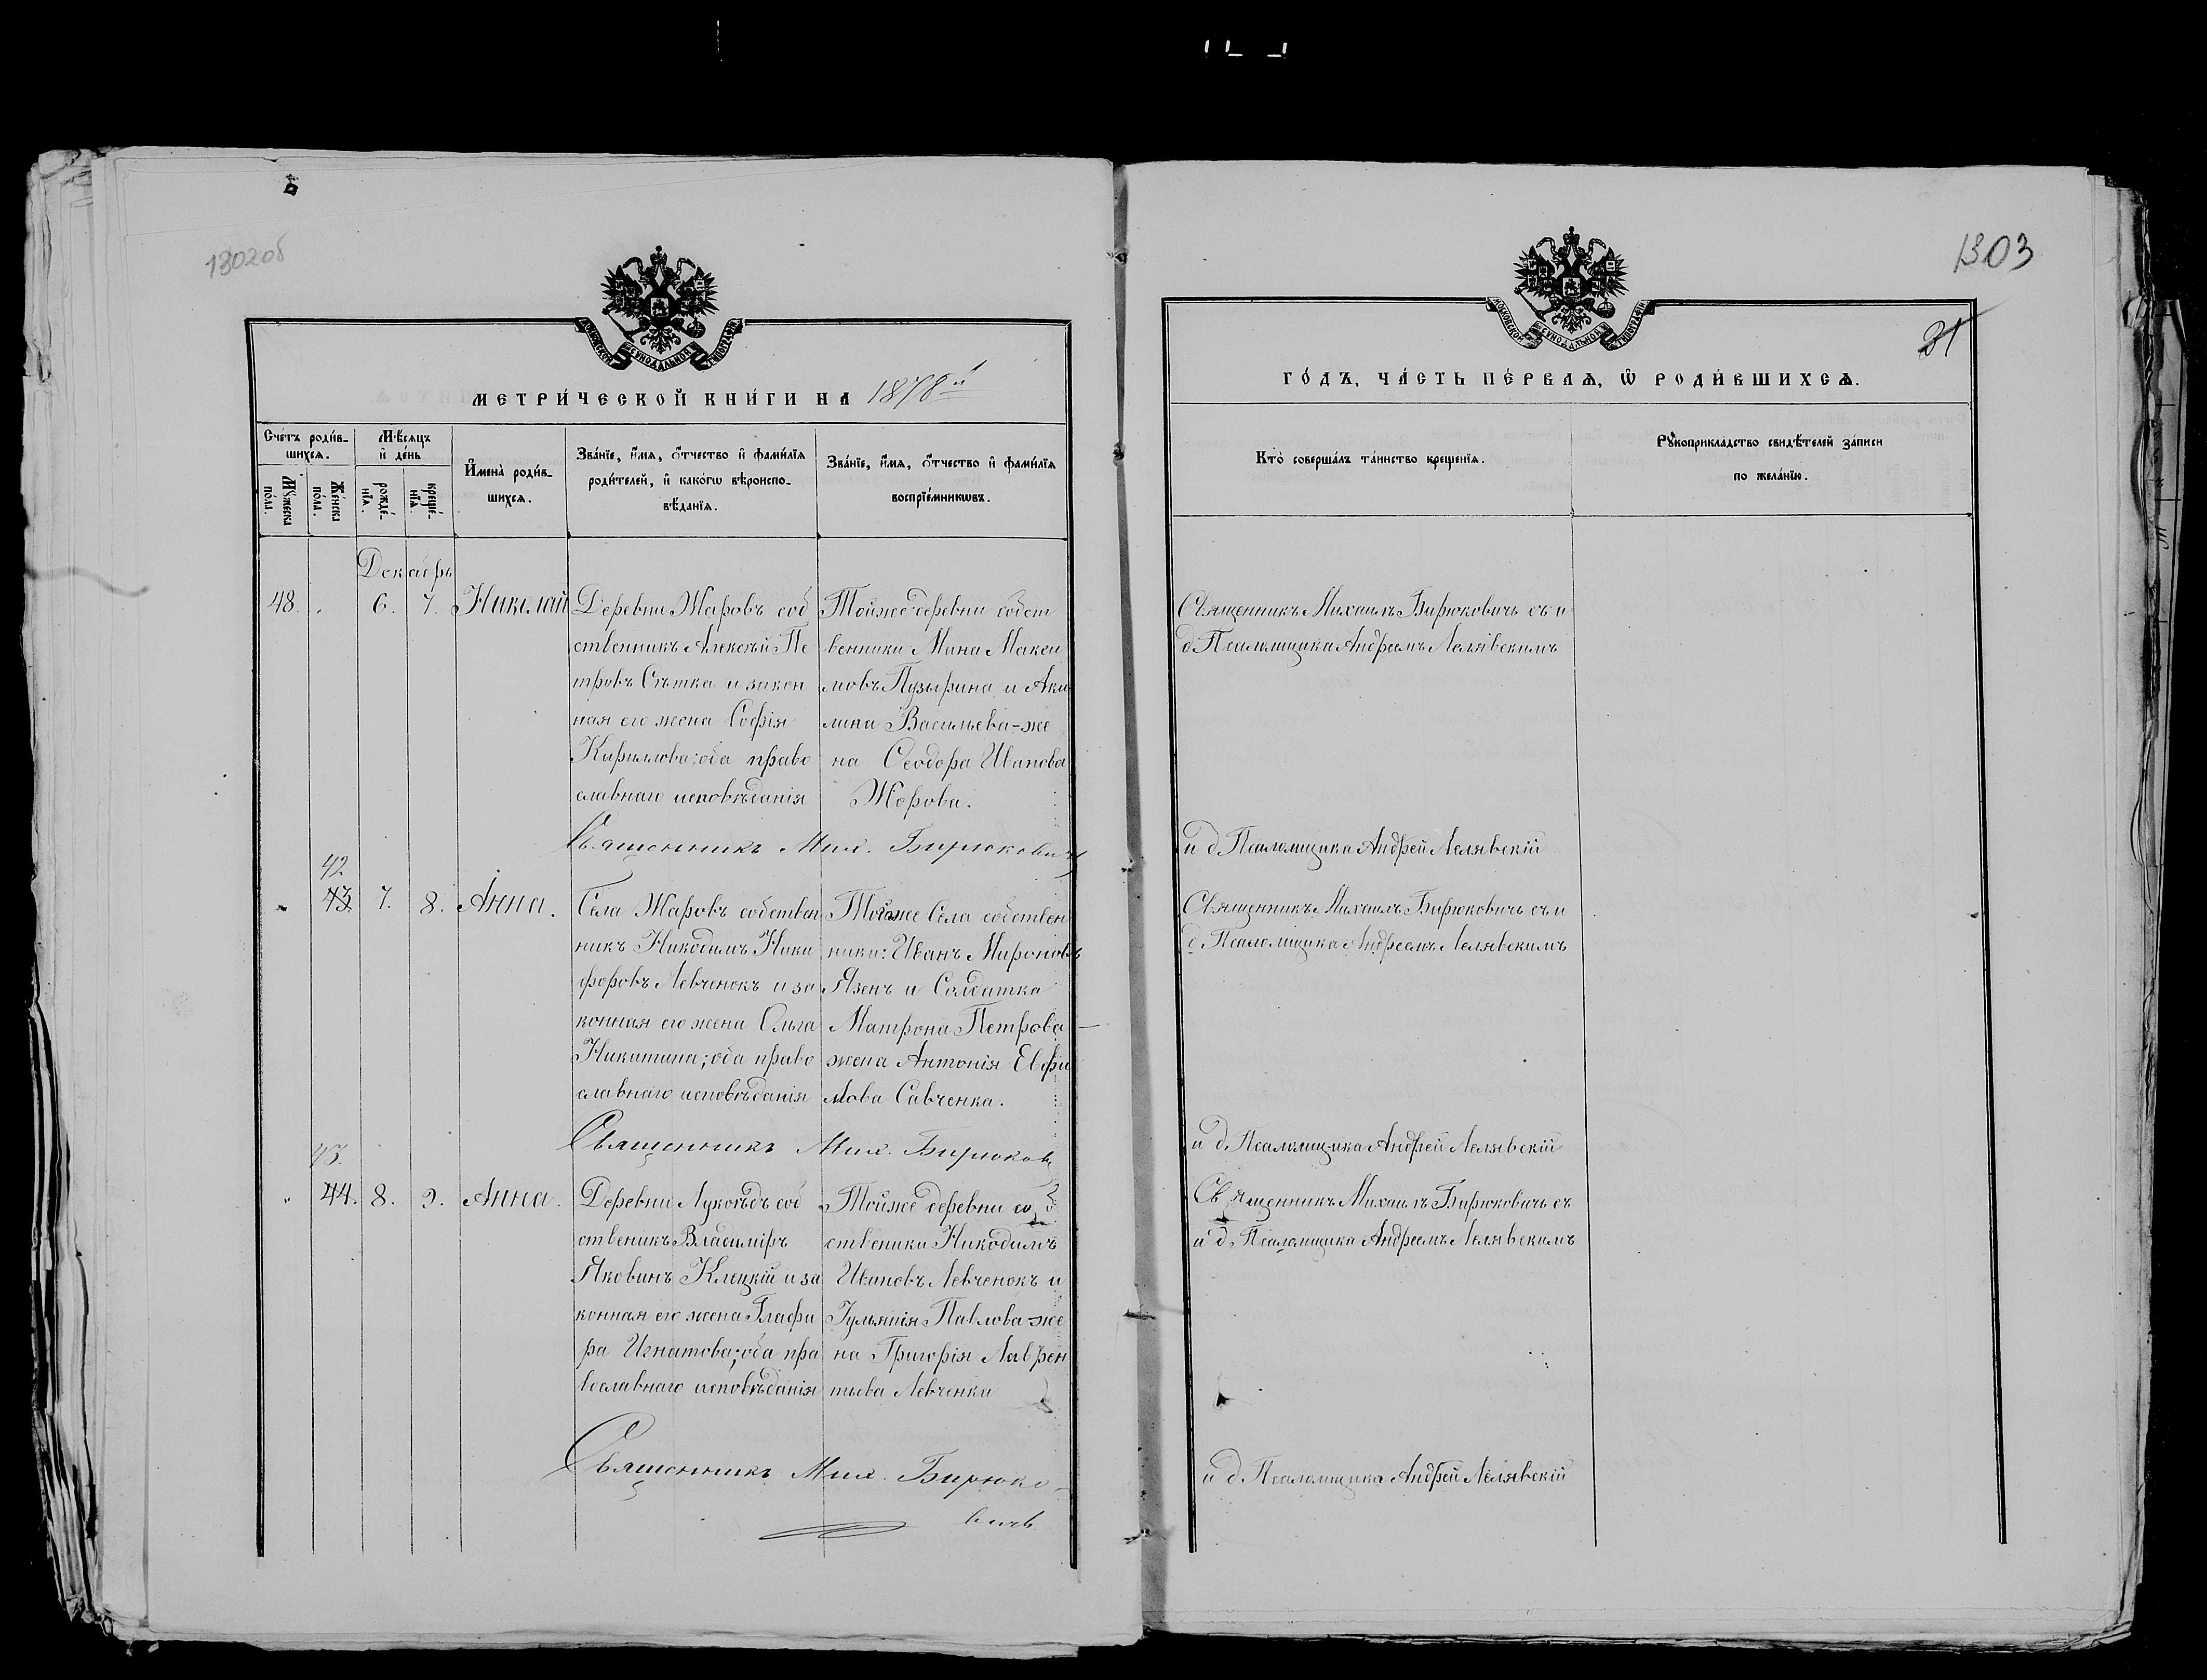 1302об
МЕТРИ́ЧЕСКОЙ КНИ́ГИ НА 1878й
Сче́тъ роди́в-
шихсѧ.
Мѣ́сѧцъ
и҆ де́нь
Мꙋ́жеска
по́ла.
Же́нска
по́ла.
рожде́-
нїѧ.
креще́-
нїѧ.
И҆мена̀ роди́в-
шихсѧ.
Зва́нїе, и҆́мѧ, ѻ҆́тчество и҆ фами́лїѧ
роди́телей, и҆ како́гѡ вѣроиспо-
вѣ́данїѧ.
Зва́нїе, и҆́мѧ, ѻ҆́тчество и҆ фами́лїѧ
воспрїе́мникѡвъ.
Декабрь
48. 6. 7. Николай
Деревни Жаровъ соб
ственникъ Алексѣй Пе
тровъ Сътка и закон
ная его жена Софія
Кирилова; оба право
славнаго исповѣданія
Тойже деревни собст
венники Мина Макси
мовъ Пузырина и Аки
лина Васильева-же
на Ѳеодора Иванова
Жорова.
Священникъ Мих. Бирюковичъ
42
43. 7. 8. Анна.
Села Жаровъ собствен
никъ Никодимъ Ники
форовъ Левченокъ и за
конная его жена Ольга
Никитина; оба право
славнаго исповѣданія
Тойже Села собствен
ники: Иванъ Мироновъ
Язенъ и Солдатка
Матрона Петрова –
жена Антонія Евфи
мова Савченка.
Священникъ Мих. Бирюков
43.
44. 8. 9. Анна.
Деревни Лукоѣдъ соб
ственикъ Владиміръ
Яковинъ Клецкій и за
конная его жена Глафи
ра Игнатова; оба пра
вославнаго исповѣданія
Тойже деревни соб
ственики Никодимъ
Ивановъ Левченокъ и
Іульянія Павлова же
на Григорія Лаврен
тьева Левченки
Священникъ Мих. Бирюко-
вичъ
1303
31
ГО́ДЪ, ЧА́СТЬ ПЕ́РВАѦ, Ѽ РОДИ́ВШИХСѦ.
Кто̀ соверша́лъ та́инство креще́нїѧ.
Рꙋкоприкла́дство свидѣ́телей за́писи
по жела́нїю.
Священникъ Михаилъ Бирюковичъ съ и
д Псаломщика Андреемъ Лелявскимъ
и д Псаломщика Андрей Лелявскій
Священникъ Михаилъ Бирюковичъ съ и
д. Псаломщика Андреемъ Лелявскимъ
и д. Псаломщика Андрей Лелявскій
Священникъ Михаилъ Бирюковичъ съ
и д. Псаломщика Андреемъ Лелявскимъ
и д. Псаломщика Андрей Лелявскій